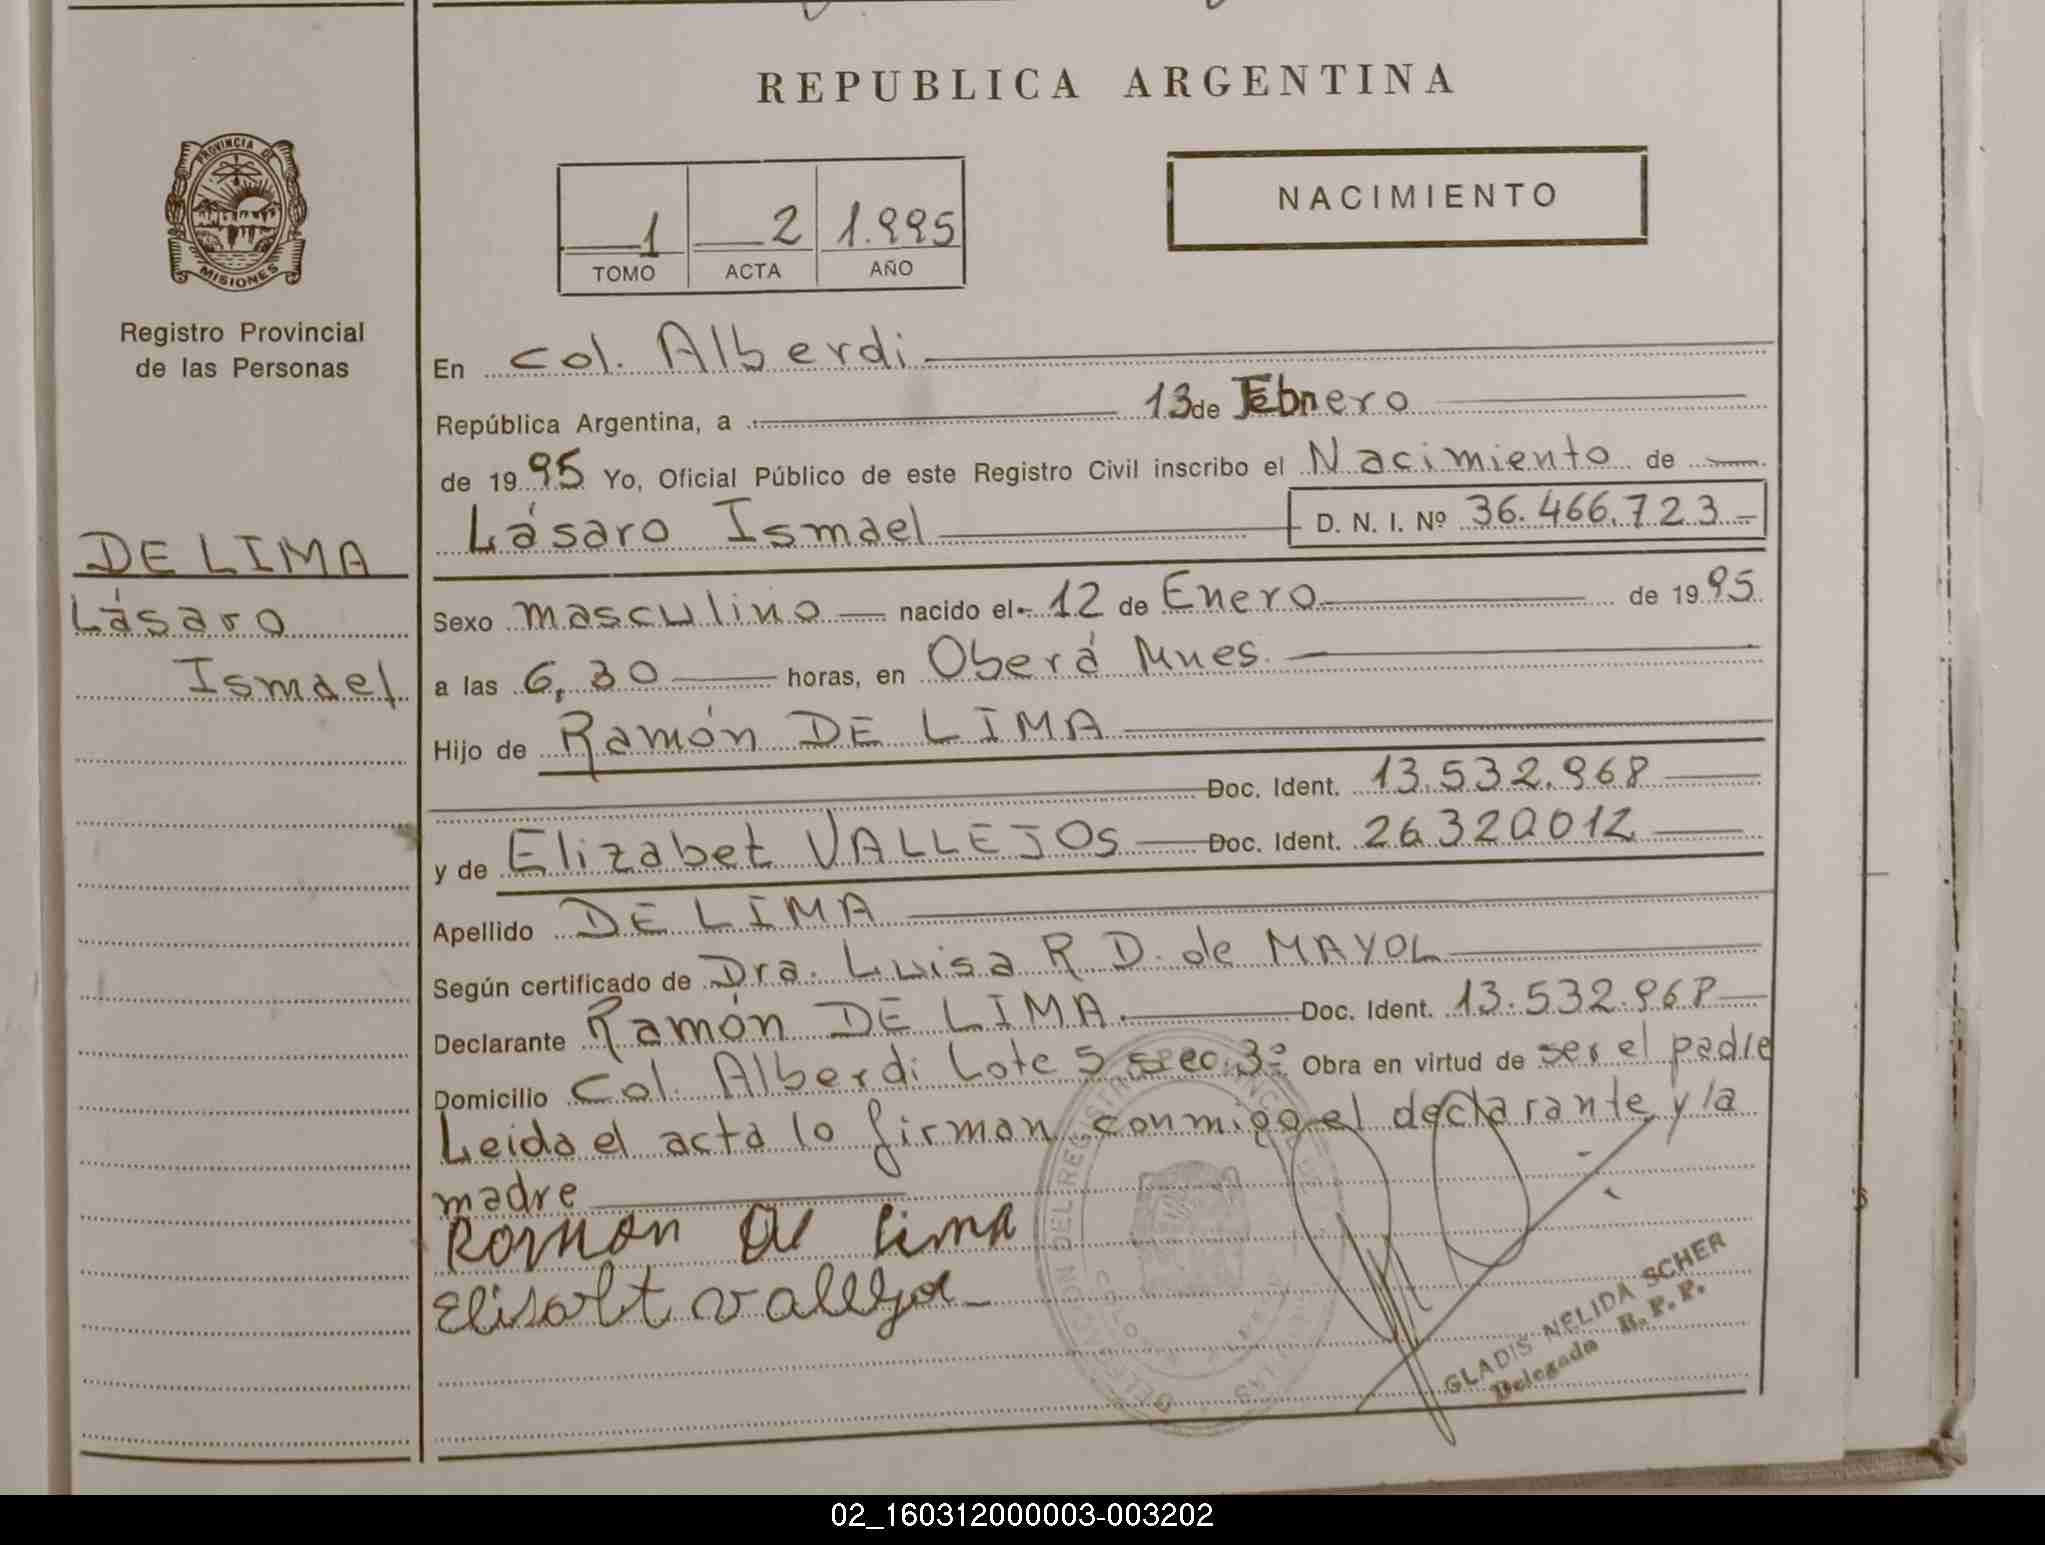 REPUBLICA ARGENTINA
PROVINCIA DE
MISIONES
Registro Provincial
de las Personas
DE LIMA
Lásaro
Ismael
1 2 1.995
TOMO ACTA AÑO
NACIMIENTO
En Col. Alberdi
República Argentina, a 13 de Febrero
de 19 95 Yo, Oficial Público de este Registro Civil inscribo el Nacimiento de
Lásaro Ismael D. N. I. Nº 36.466.723
Sexo masculino nacido el 12 de Enero de 19 95
a las 6,30 horas, en Oberá Mnes.
Hijo de Ramón DE LIMA
Doc. Ident. 13.532.968
y de Elizabet VALLEJOS Doc. Ident. 26.320.012
Apellido DE LIMA
Según certificado de Dra. Luisa R D. de MAYOL
Declarante Ramón DE LIMA. Doc. Ident. 13.532.968
Domicilio Col. Alberdi Lote 5 sec. 3º Obra en virtud de ser el padre
Leida el acta lo firman conmigo el declarante y la
madre
Roman De lima
Elisabt vallejo
GLADIS NELIDA SCHER
Delegada R.P.P.
02_160312000003-003202